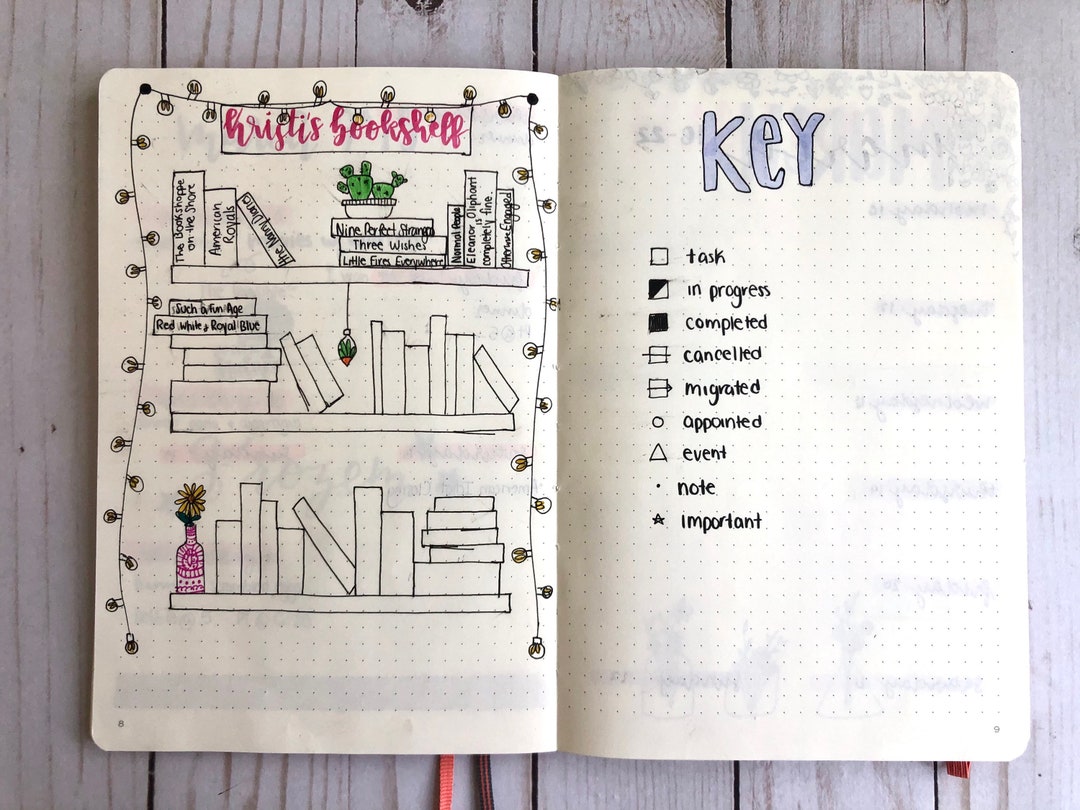 kristi's bookshelf
The Bookshoppe
on the Shore
American
Royals
The Nanny Diaries
Nine Perfect Strangers
Three Wishes
Little Fires Everywhere
Normal People
Eleanor Oliphant
is
completely fine
Such a Fun Age
Red White & Royal Blue
8
KEY
task
in progress
completed
cancelled
migrated
appointed
event
note
important
9